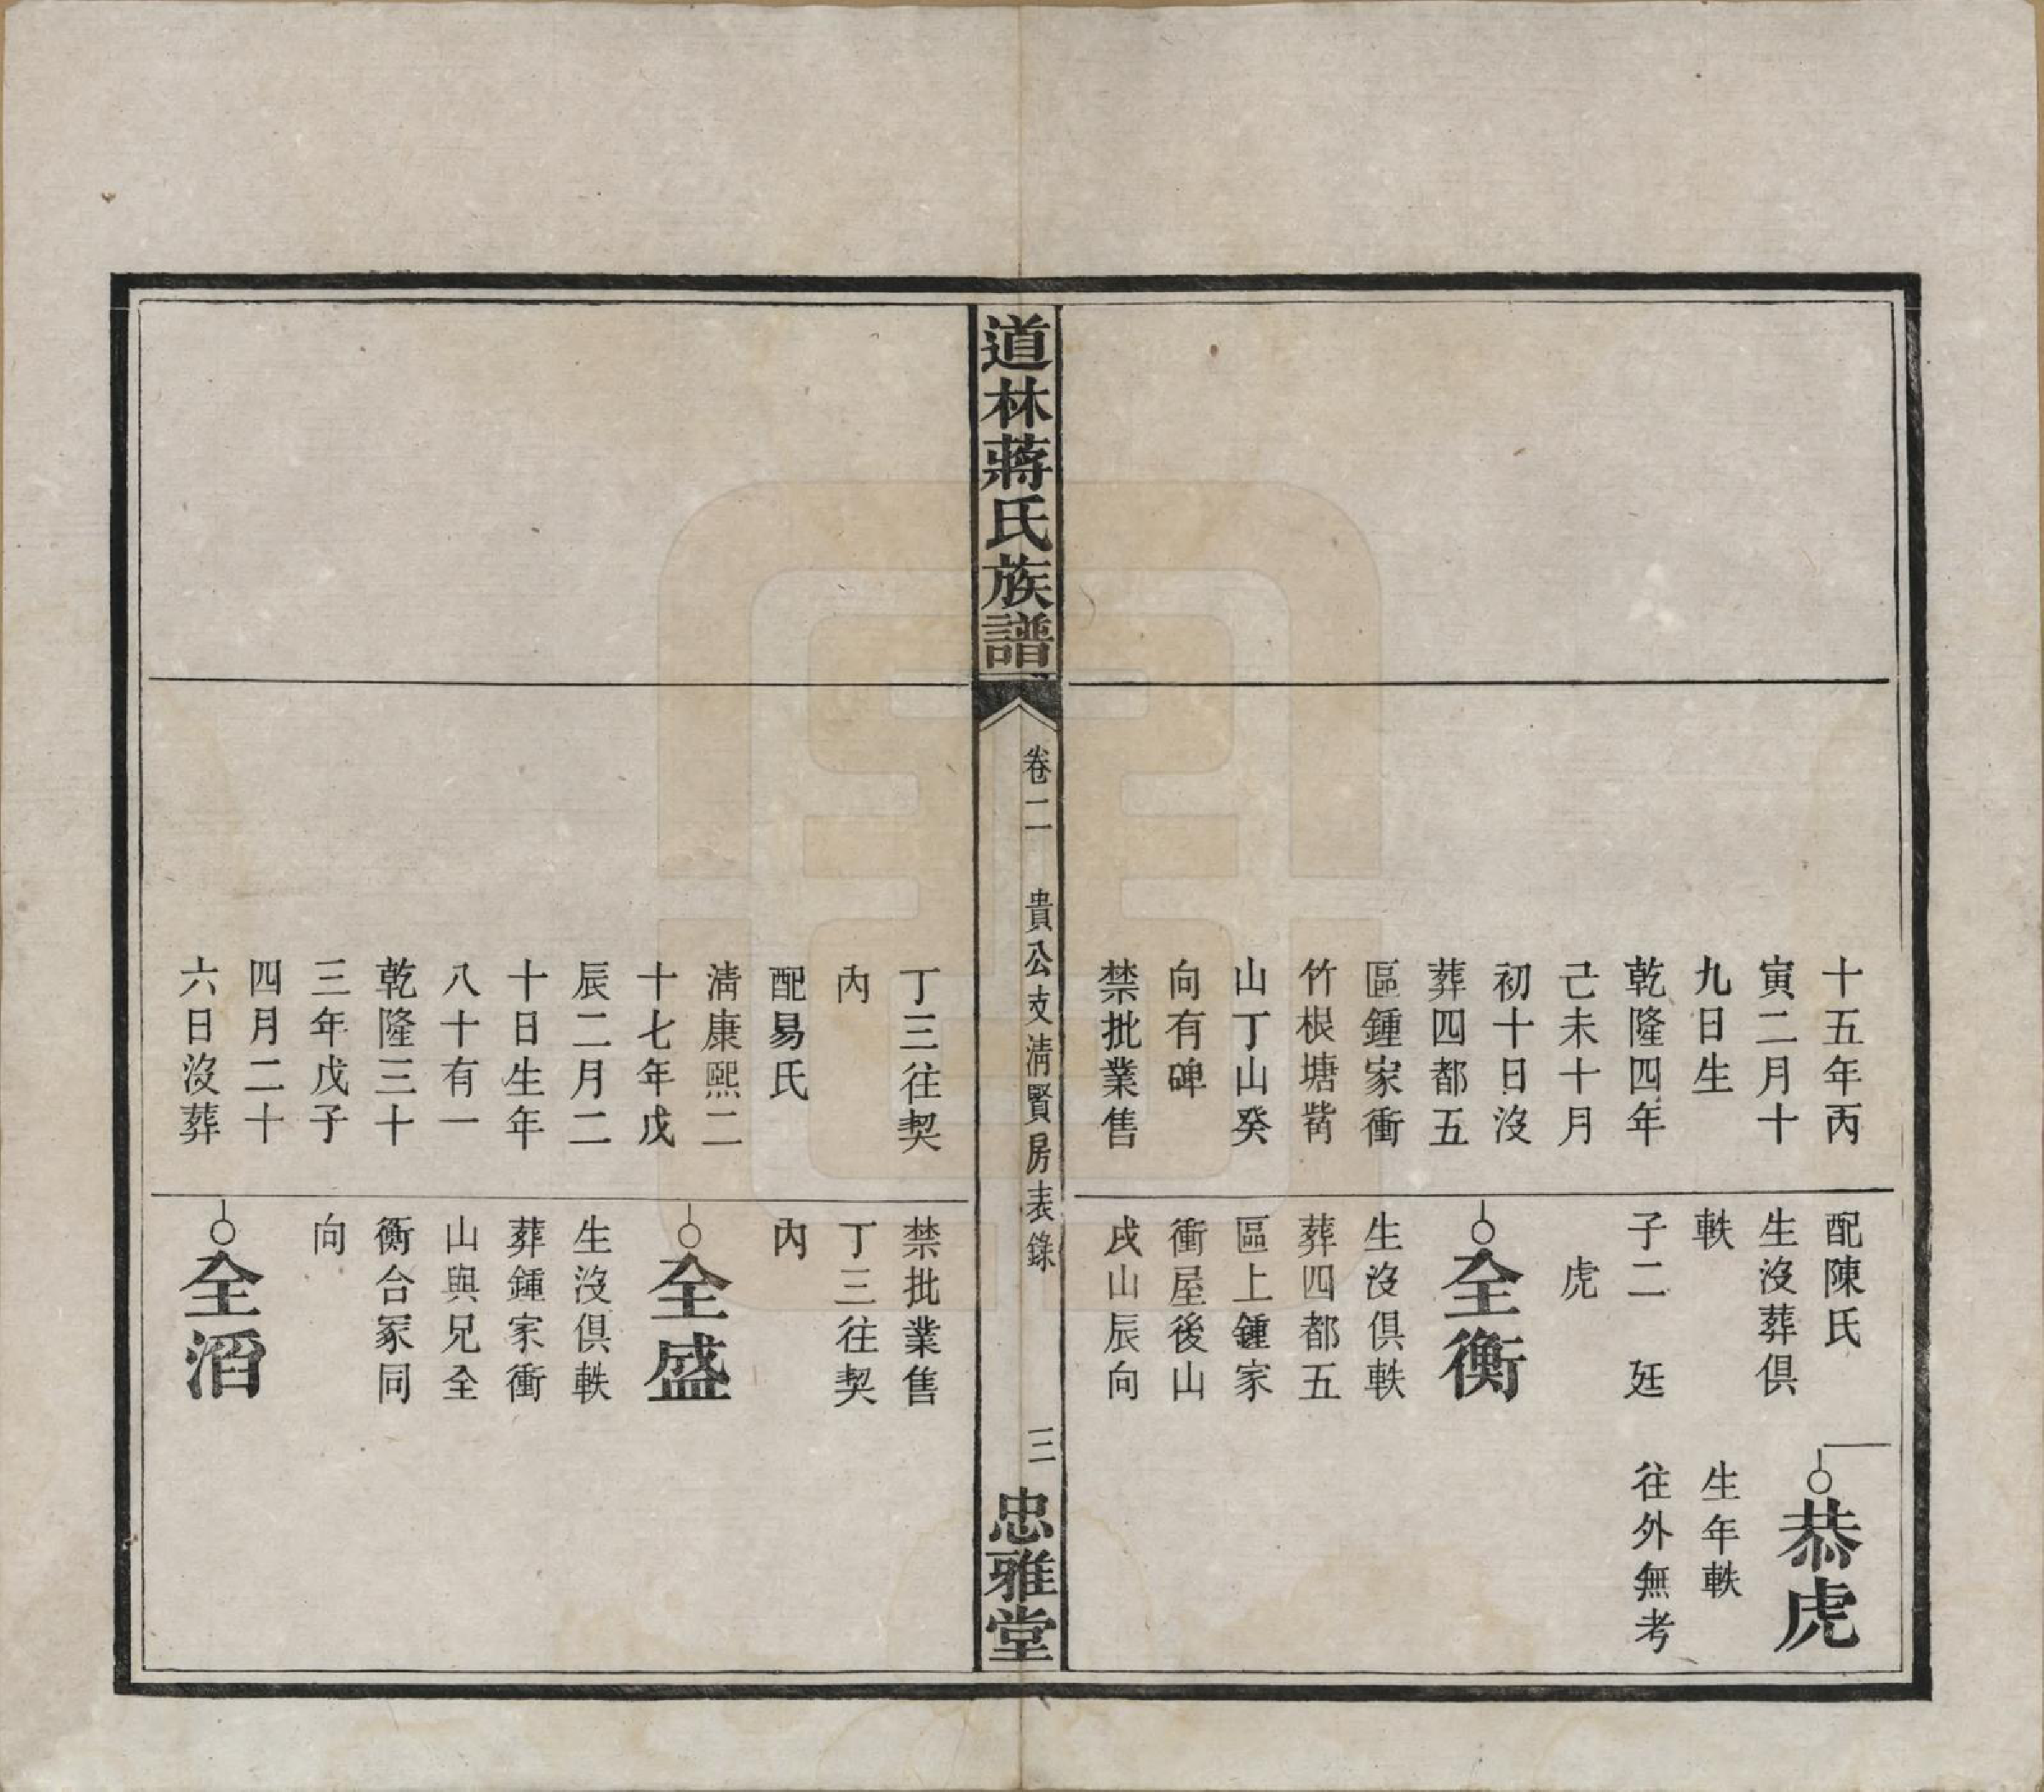 十五年丙
寅二月十
九日生
乾隆四年
己未十月
初十日沒
葬四都五
區鍾家衝
竹根塘觜
山丁山癸
向有碑
禁批業售
配陳氏
生沒葬俱
軼
子二 廷
虎
全衡
生沒俱軼
葬四都五
區上鍾家
衝屋後山
戌山辰向
恭虎
生年軼
往外無考
道林蔣氏族譜
卷二 貴公支清賢房表錄
三
忠雅堂
丁三往契
內
配易氏
清康熙二
十七年戊
辰二月二
十日生年
八十有一
乾隆三十
三年戊子
四月二十
六日沒葬
禁批業售
丁三往契
內
全盛
生沒俱軼
葬鍾家衝
山與兄全
衡合冢同
向
全滔